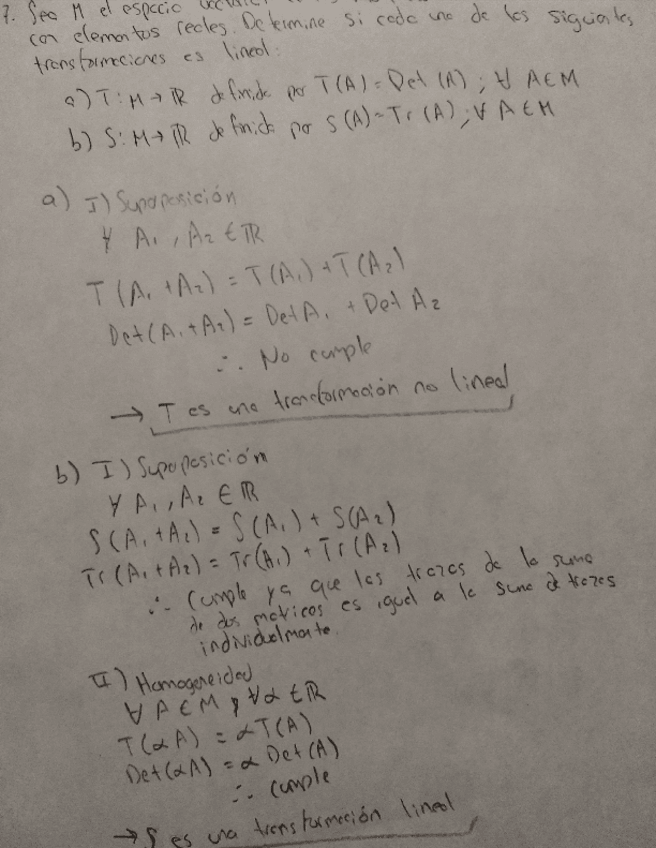 7. Sea M el espacio
con elementos reales. Determine si cada una de las siguientes
transformaciones es lineal:
a) T: M → ℝ definida por T(A) = Det (A) ; ∀ A ∈ M
b) S: M → ℝ definida por S(A) = Tr (A) ; ∀ A ∈ M
a) I) Superposición
∀ A₁, A₂ ∈ ℝ
T (A₁ + A₂) = T(A₁) + T(A₂)
Det(A₁ + A₂) = Det A₁ + Det A₂
∴ No cumple
→ T es una transformación no lineal
b) I) Superposición
∀ A₁, A₂ ∈ ℝ
S(A₁ + A₂) = S(A₁) + S(A₂)
Tr (A₁ + A₂) = Tr(A₁) + Tr(A₂)
∴ Cumple ya que las trazas de la suma
de dos matrices es igual a la suma de trazas
individualmente.
II) Homogeneidad
∀ A ∈ M y ∀ α ∈ ℝ
T(αA) = αT(A)
Det(αA) = α Det(A)
∴ cumple
→ S es una transformación lineal